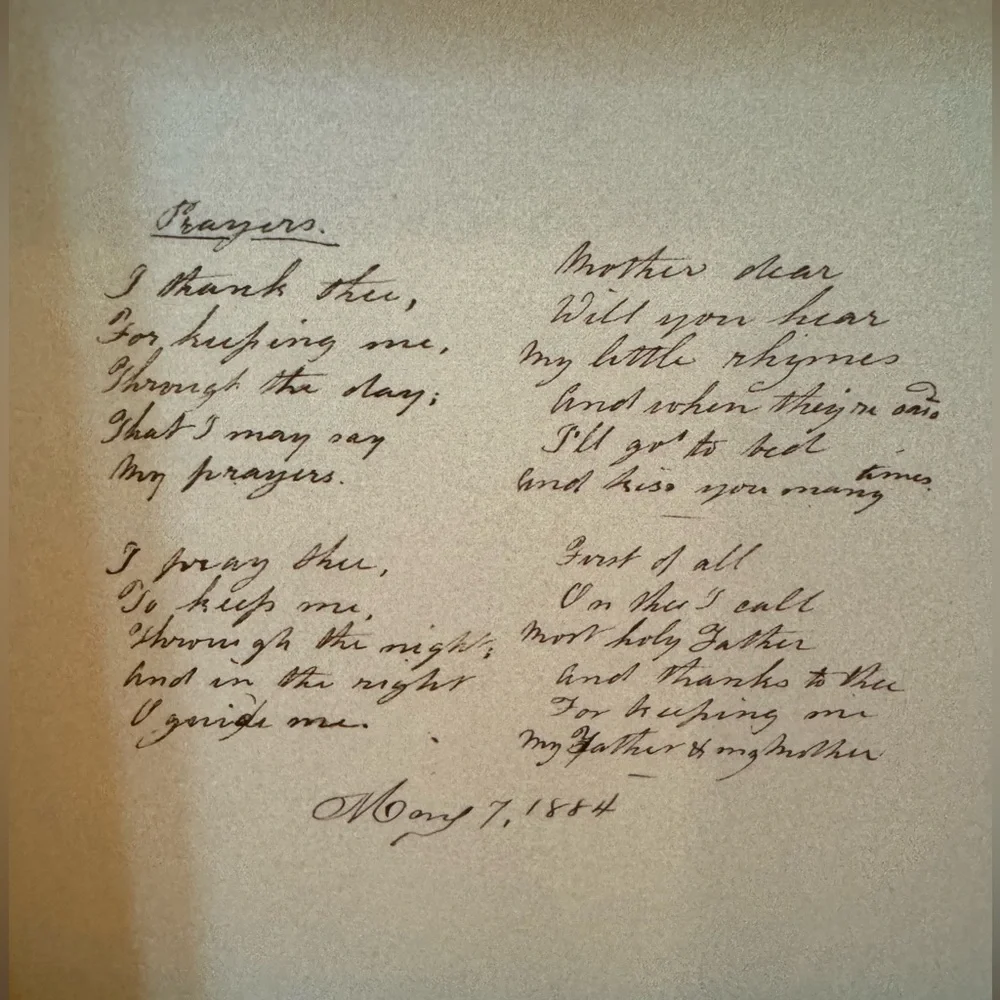 Prayers.
I thank thee,
For keeping me,
Through the day;
That I may say
My prayers.
I pray thee,
To keep me,
Through the night;
And in the right
O guide me.
Mother dear
Will you hear
My little rhymes
And when they're said
I'll go to bed
And kiss you many times.
First of all
On thee I call
Most holy Father
And thanks to thee
For keeping me
My Father & my Mother
May 7, 1884